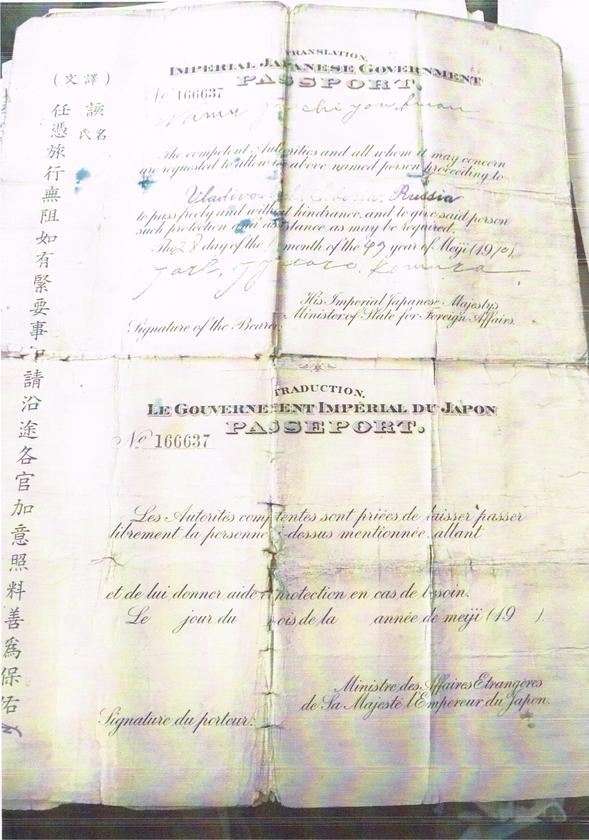 （文譯）
該氏名
任憑旅行無阻如有緊要事
請沿途各官加意照料善爲保佑
TRANSLATION.
IMPERIAL JAPANESE GOVERNMENT
PASSPORT.
No 166637
The competent Autorities and all whom it may concern
are requested to allow the above named person proceeding to
Russia
to pass freely and without hindrance and to give said person
such protection and assistance as may be required.
The 28 day of the month of the 43 year of Meiji (1910)
Komura
His Imperial Japanese Majesty's
Minister of State for Foreign Affairs.
Signature of the Bearer:
TRADUCTION.
LE GOUVERNEMENT IMPÉRIAL DU JAPON
PASSEPORT.
No 166637
Les Autorités compétentes sont priées de laisser passer
librement la personne ci-dessus mentionnée allant
et de lui donner aide et protection en cas de besoin.
Le jour du mois de la année de meiji (19 ).
Ministre des Affaires Étrangères
de Sa Majesté l'Empereur du Japon.
Signature du porteur: